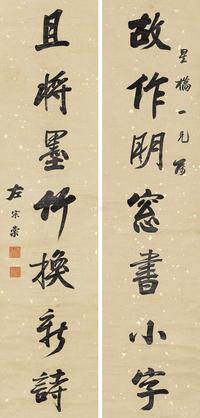 星橋一兄屬
故作明窓書小字
且將墨竹換新詩
左宗棠